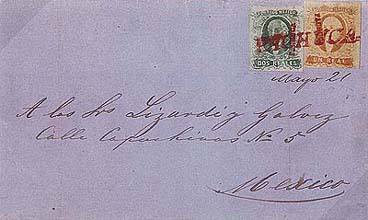 PACHUCA
DOS REALES
UN REAL
Mayo 21
A los Srs Lizardi y Galvez
Calle Capuchinas No 5
Mexico